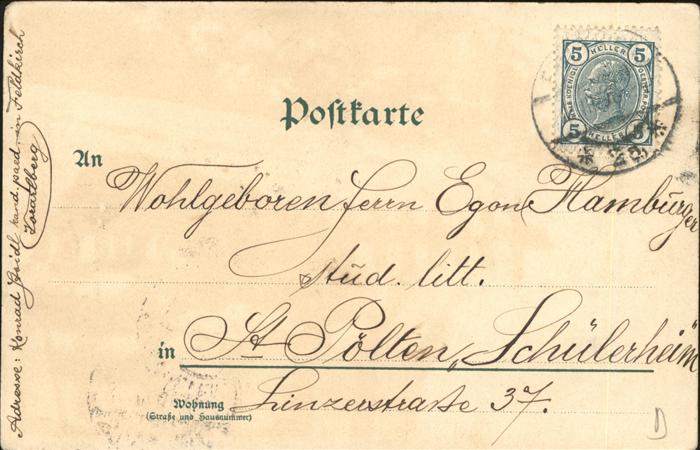 Postkarte
An
Wohlgeboren Herrn Egon Hamburger
stud. litt.
in St. Pölten, "Schülerheim
Wohnung
(Straße und Hausnummer)
Linzerstraße 37.
Adresse: Konrad cand. paed. in Feldkirch
Vorarlberg
5 HELLER 5
5 HELLER 5
D